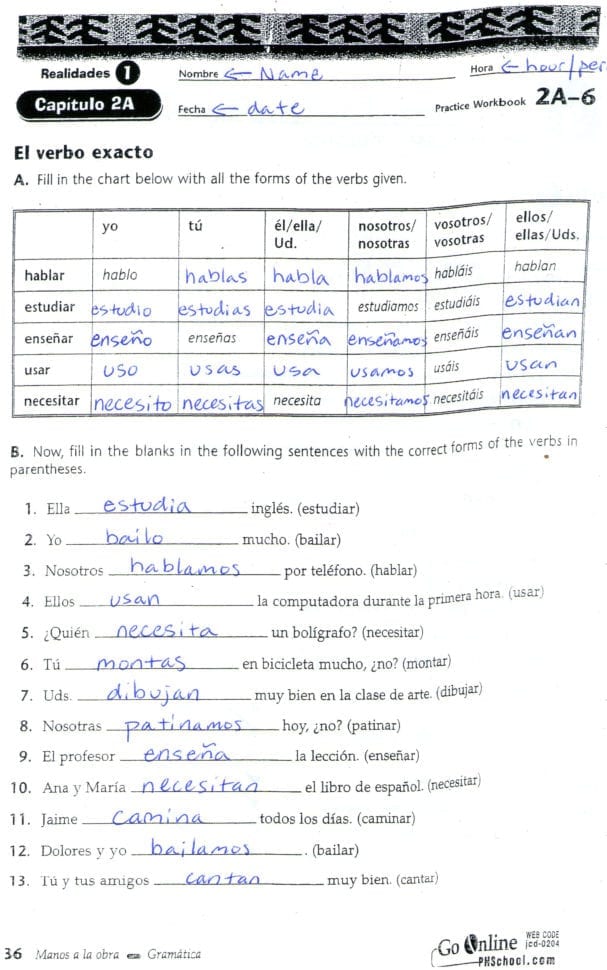 Realidades 1 Nombre ← Name Hora ← hour/per
Capítulo 2A Fecha ← date Practice Workbook 2A–6
El verbo exacto
A. Fill in the chart below with all the forms of the verbs given.
yo tú él/ella/ Ud. nosotros/ nosotras vosotros/ vosotras ellos/ ellas/Uds.
hablar hablo hablas habla hablamos habláis hablan
estudiar estudio estudias estudia estudiamos estudiáis estudian
enseñar enseño enseñas enseña enseñamos enseñáis enseñan
usar uso usas usa usamos usáis usan
necesitar necesito necesitas necesita necesitamos necesitáis necesitan
B. Now, fill in the blanks in the following sentences with the correct forms of the verbs in
parentheses.
1. Ella estudia inglés. (estudiar)
2. Yo bailo mucho. (bailar)
3. Nosotros hablamos por teléfono. (hablar)
4. Ellos usan la computadora durante la primera hora. (usar)
5. ¿Quién necesita un bolígrafo? (necesitar)
6. Tú montas en bicicleta mucho, ¿no? (montar)
7. Uds. dibujan muy bien en la clase de arte. (dibujar)
8. Nosotras patinamos hoy, ¿no? (patinar)
9. El profesor enseña la lección. (enseñar)
10. Ana y María necesitan el libro de español. (necesitar)
11. Jaime camina todos los días. (caminar)
12. Dolores y yo bailamos. (bailar)
13. Tú y tus amigos cantan muy bien. (cantar)
36 Manos a la obra Gramática
Go Online WEB CODE jcd-0204
PHSchool.com